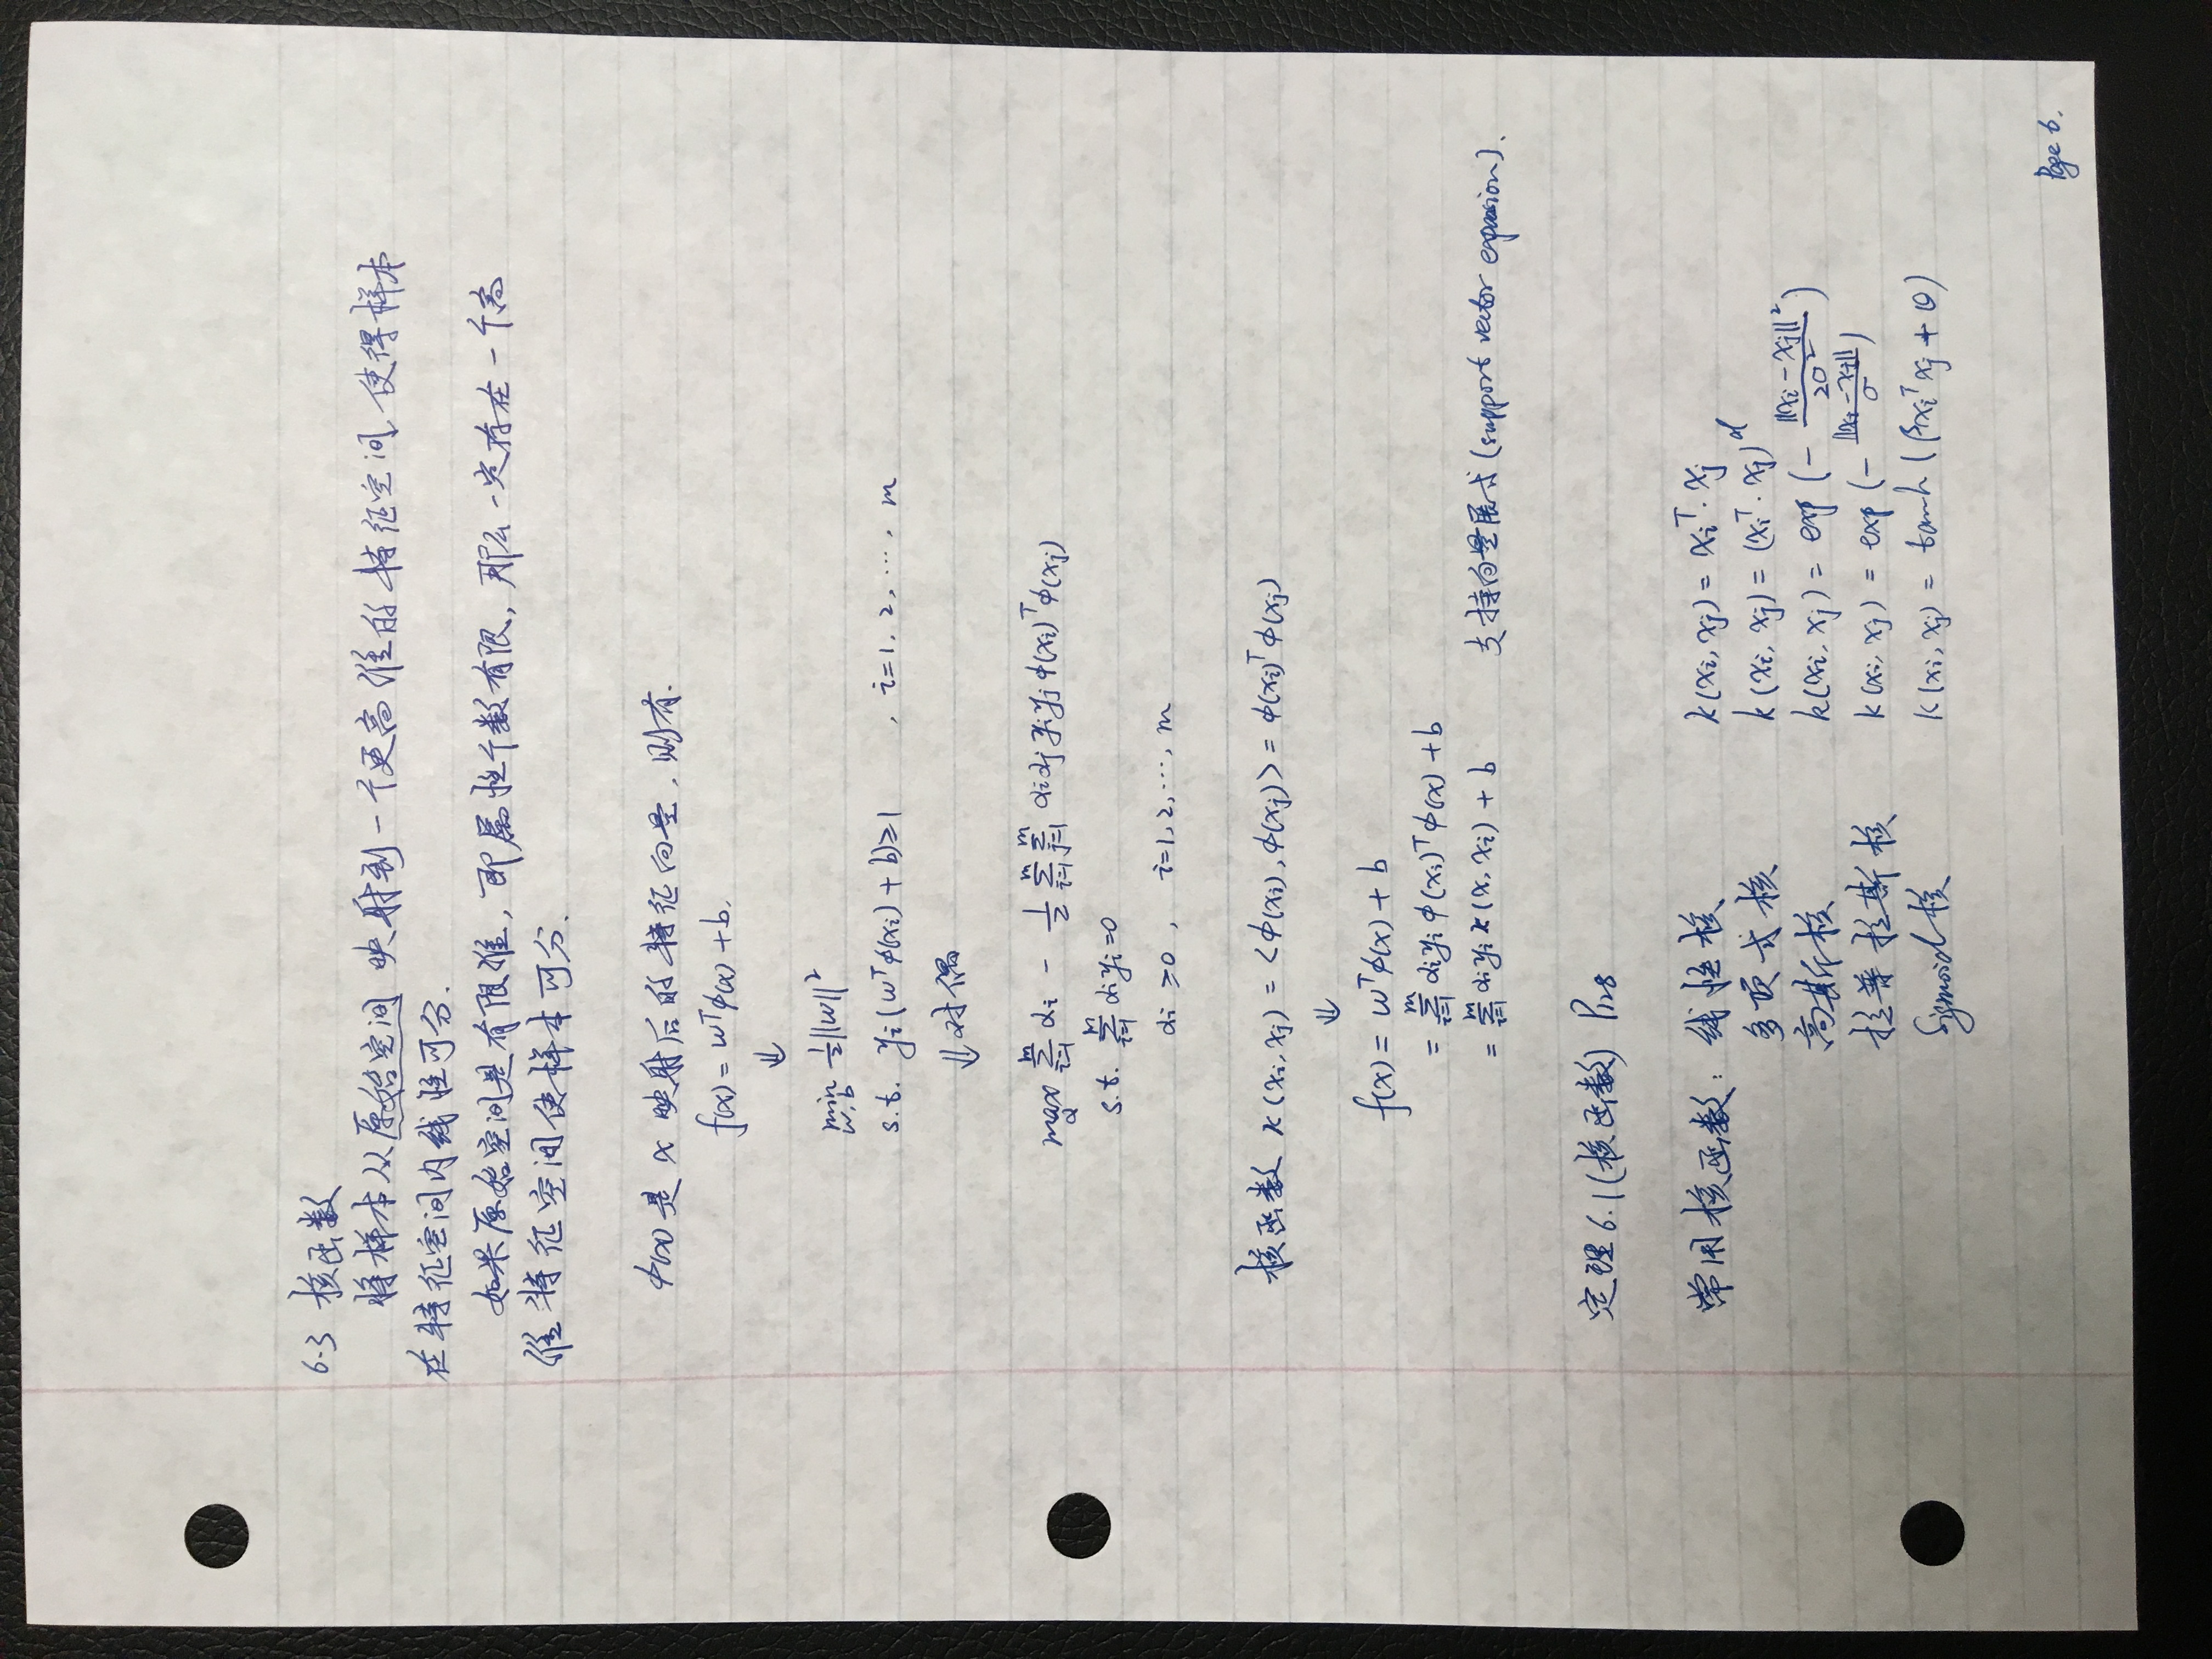 6.3 核函数
将样本从原始空间映射到一个更高维的特征空间,使得样本
在特征空间内线性可分.
如果原始空间是有限维,即属性个数有限,那么一定存在一个高
维特征空间使样本可分.
ϕ(x) 是 x 映射后的特征向量,则有.
f(x) = wᵀϕ(x) + b.
⇓
min_{w,b} ½||w||²
s.t. yᵢ(wᵀϕ(xᵢ) + b) ≥ 1 , i=1, 2, ⋯, m
⇓ 对偶
max_α Σ_{i=1}^m αᵢ - ½ Σ_{i=1}^m Σ_{j=1}^m αᵢαⱼyᵢyⱼϕ(xᵢ)ᵀϕ(xⱼ)
s.t. Σ_{i=1}^m αᵢyᵢ=0
αᵢ ≥0, i=1,2,⋯, m
核函数 κ(xᵢ, xⱼ) = <ϕ(xᵢ), ϕ(xⱼ)> = ϕ(xᵢ)ᵀϕ(xⱼ)
⇓
f(x) = wᵀϕ(x) + b
= Σ_{i=1}^m αᵢyᵢϕ(xᵢ)ᵀϕ(x) + b
= Σ_{i=1}^m αᵢyᵢκ(x, xᵢ) + b 支持向量展式 (support vector expansion).
定理6.1(核函数) P₁₂₈
常用核函数: 线性核 k(xᵢ, xⱼ) = xᵢᵀ·xⱼ
多项式核 k(xᵢ, xⱼ) = (xᵢᵀ·xⱼ)^d
高斯核 k(xᵢ, xⱼ) = exp(- ||xᵢ - xⱼ||² / 2σ²)
拉普拉斯核 k(xᵢ, xⱼ) = exp(- ||xᵢ - xⱼ|| / σ)
Sigmoid核 k(xᵢ, xⱼ) = tanh(βxᵢᵀxⱼ + θ)
Page 6.